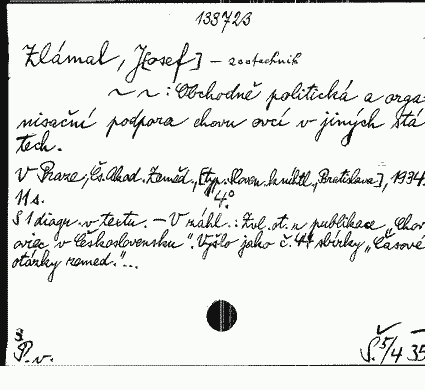 133723
Zlámal, J[osef] – zootechnik
~ ~ : Obchodně politická a orga
nisační podpora chovu ovcí v jiných stá
tech.
V Praze, Čs. Akad. Zeměd., [typ. Sloven. kníhtl., Bratislava], 1934.
11 s. 4°
S 1 diagr. v textu. – V záhl.: Zvl. ot. z publikace „Chov
oviec v Československu". Vyšlo jako č. 44 sbírky „Časové
otázky zeměd."...
P. v.
Š. 5/4 35